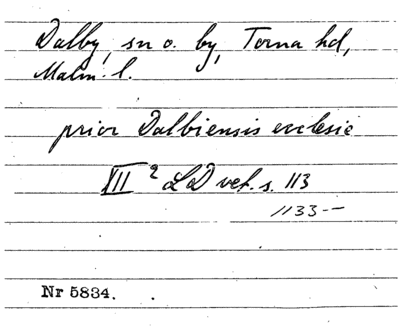 Dalby, sn o. by, Torna hd,
Malm. l.
prior Dalbiensis ecclesie
XII 2 LD vet. s. 113
1133-
Nr 5834.